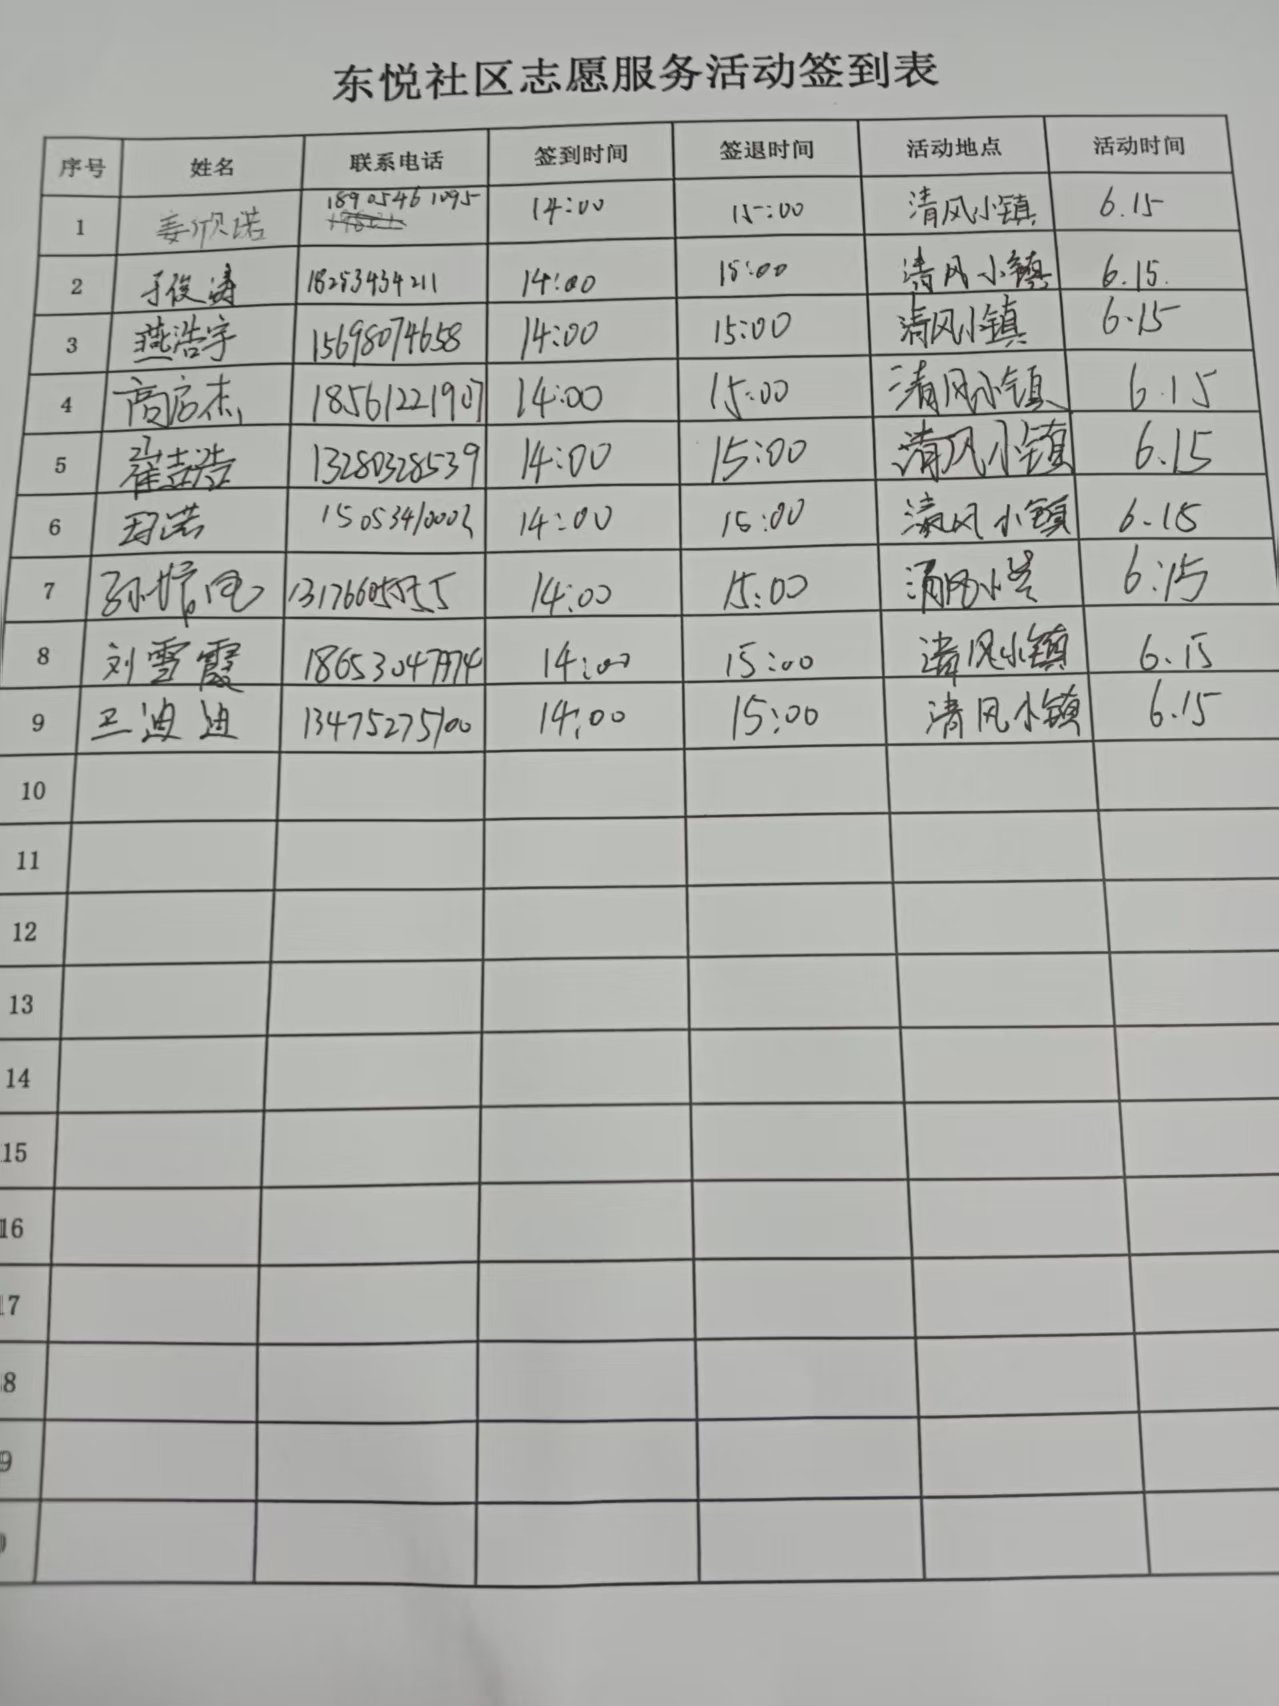 东悦社区志愿服务活动签到表
序号 姓名 联系电话 签到时间 签退时间 活动地点 活动时间
1 姜欣诺 18905461095 14:00 15:00 清风小镇 6.15
2 于俊涛 18253434211 14:00 15:00 清风小镇 6.15.
3 燕浩宇 15698074658 14:00 15:00 清风小镇 6.15
4 高启杰 18561221907 14:00 15:00 清风小镇 6.15
5 崔喆浩 13280328539 14:00 15:00 清风小镇 6.15
6 14:00 15:00 清风小镇 6.15
7 14:00 15:00 清风小 6:15
8 刘雪霞 14:00 15:00 清风小镇 6.15
9 王迪迪 13475275100 14:00 15:00 清风小镇 6.15
10
11
12
13
14
15
16
17
8
9